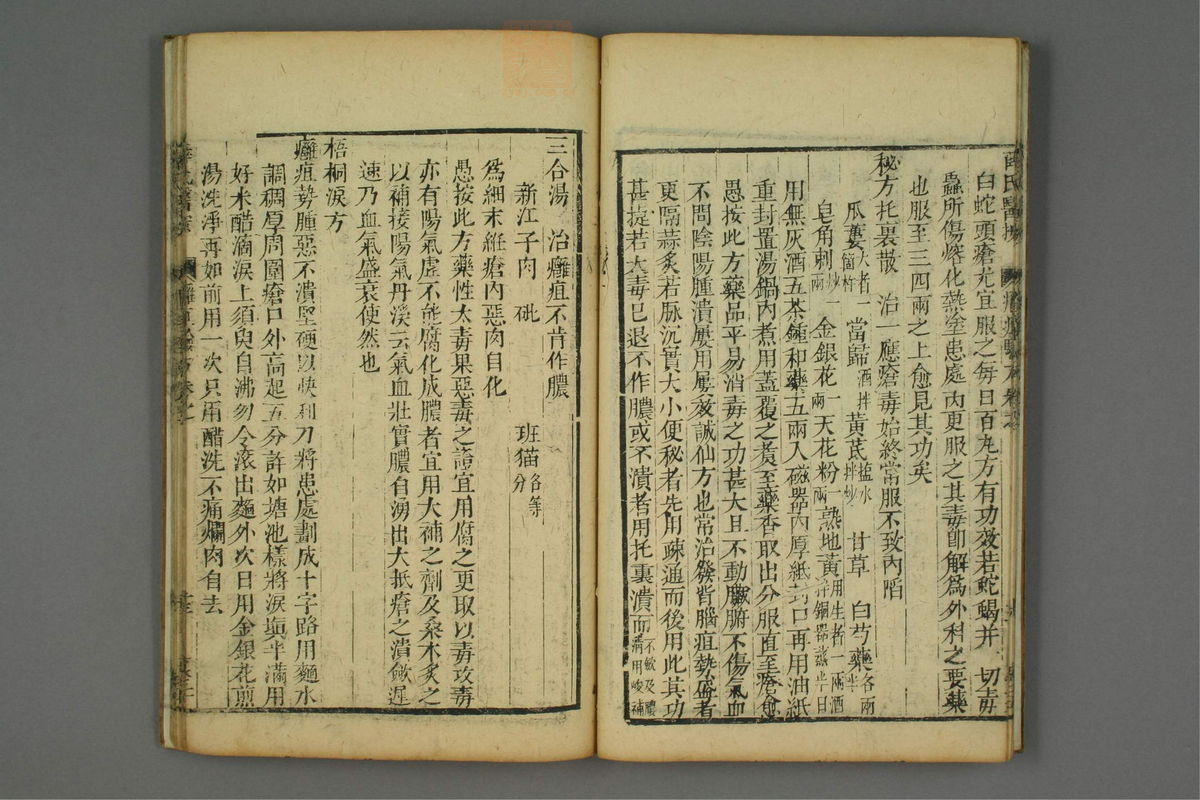 白蛇頭瘡尤宜服之每日百丸方有功效若蛇蝎并一切毒
蟲所傷熔化熱塗患處內更服之其毒卽解爲外科之要藥
也服至三四兩之上愈見其功矣
秘方托裏散 治一應瘡毒始終常服不致內陷
瓜蔞大者一箇杵 當歸酒拌 黃芪鹽水拌炒 甘草 白芍藥各兩半
皂角刺炒一兩 金銀花一兩 天花粉一兩 熟地黃用生者一兩酒拌銅器蒸半日
用無灰酒五茶鍾和藥五兩入磁器內厚紙封口再用油紙
重封置湯鍋內煮用蓋覆之煮至藥香取出分服直至瘡愈
愚按此方藥品平易消毒之功甚大且不動臟腑不傷氣血
不問陰陽腫潰屢用屢效誠仙方也常治發背腦疽勢盛者
更隔蒜炙若脉沉實大小便秘者先用疎通而後用此其功
甚捷若大毒已退不作膿或不潰者用托裏潰而不歛及膿清用峻補
三合湯 治癰疽不肯作膿
新江子肉 砒 班猫各等分
爲細末維瘡內惡肉自化
愚按此方藥性大毒果惡毒之證宜用腐之更取以毒攻毒
亦有陽氣虛不能腐化成膿者宜用大補之劑及桑木炙之
以補接陽氣丹溪云氣血壯實膿自湧出大抵瘡之潰歛遲
速乃血氣盛衰使然也
梧桐淚方
癰疽勢腫惡不潰堅硬以快利刀將患處劃成十字路用麵水
調稠厚周圍瘡口外高起五分許如塘池樣將淚塡半滿用
好米醋滴淚上須臾自沸勿令滾出麵外次日用金銀花煎
湯洗淨再如前用一次只用醋洗不痛爛肉自去